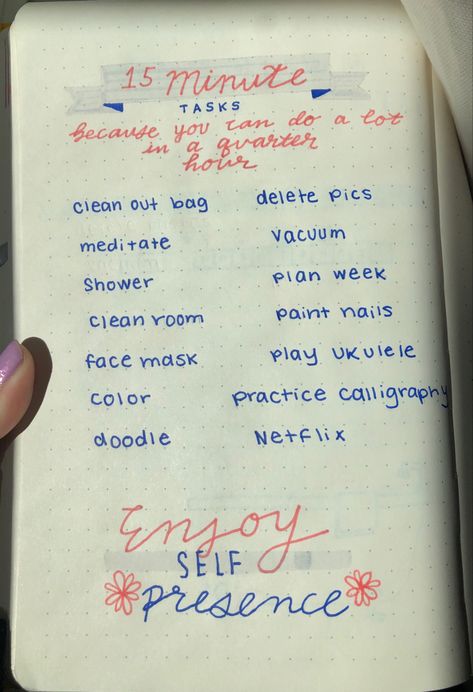 15 minute
TASKS
because you can do a lot
in a quarter
hour
clean out bag
meditate
shower
clean room
face mask
color
doodle
delete pics
vacuum
plan week
paint nails
play ukulele
practice calligraphy
Netflix
Enjoy
SELF
presence